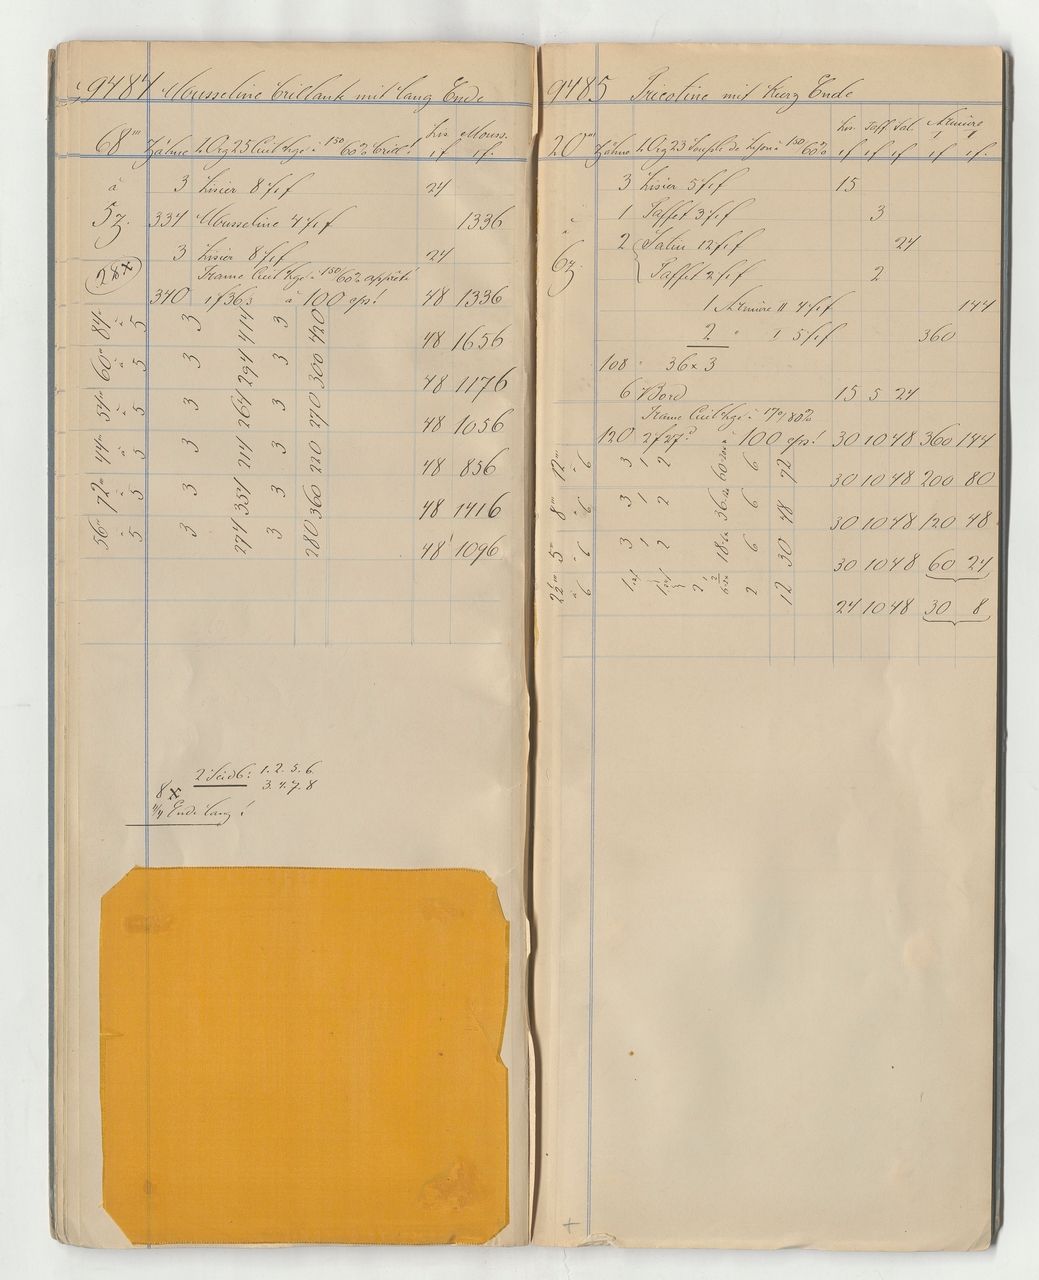 9484 Mousseline brillant mit lang Ende
Lis. Mouss.
68''' Zähne 2 Org 25 Cuit hge à 150/60% brill! 1f 1f.
à 3 Lisier 8f.f 24
5z. 334 Mousseline 4f.f 1336
3 Lisier 8f.f 24
28x Trame Cuit hge à 150/60% apprêté
340 1f36s à 100 cps! 48 1336
84''' à 5 3 414 3 420 48 1656
60''' à 5 3 294 3 300 48 1176
54''' à 5 3 264 3 270 48 1056
44''' à 5 3 214 3 220 48 856
72''' à 5 3 354 3 360 48 1416
56''' à 5 3 274 3 280 48 1096
2 Seidb: 1. 2. 5. 6.
8x 3. 4. 7. 8
Ende lang!
9485 Tricotine mit kurz Ende
Lis. Taff Sat. Armüre
20''' Zähne 2 Org 23 Souple à 150/60% 1f 1f 1f 1f 1f.
3 Lisier 5f.f 15
à 1 Taffet 3f.f 3
6z. 2 Satin 12f.f 24
Taffet 2f.f 2
1 Armüre II 4f.f 144
2 " I 5f.f 360
108 " 36x3
6 Bord 15 5 24
Trame Cuit hge à 170/80%
120 2f27s à 100 cps! 30 10 48 360 144
12''' à 6 3 1 2 60 6 72 30 10 48 200 80
8''' à 6 3 1 2 36 6 48 30 10 48 120 48
5''' à 6 3 1 2 18 6 30 30 10 48 60 24
2½''' à 6 2 2 12 24 10 48 30 8
+